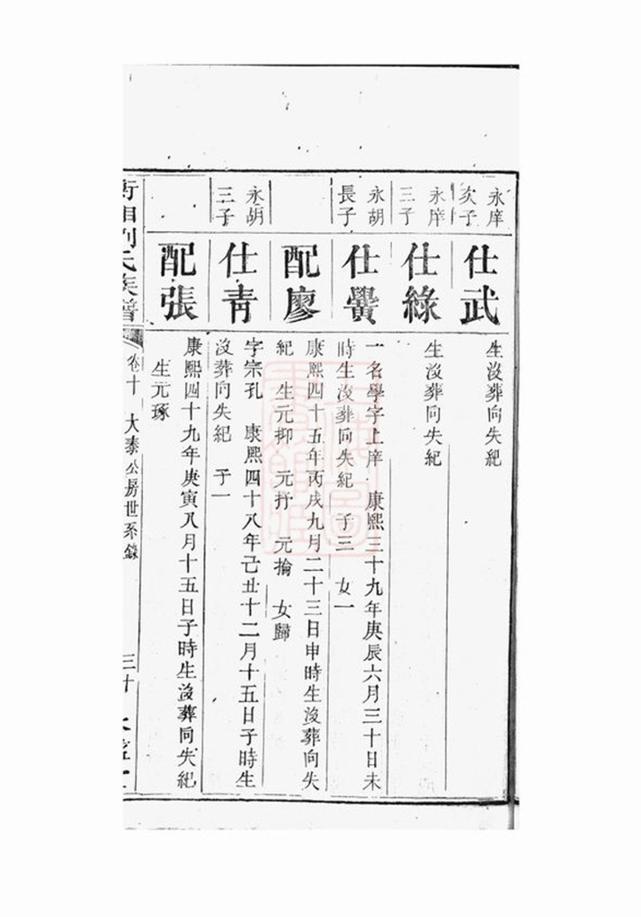 永庠
次子
仕武
生沒葬向失紀
永庠
三子
仕綠
生沒葬向失紀
永胡
長子
仕黌
一名學字上庠 康熙三十九年庚辰六月三十日未
時生沒葬向失紀 子三 女一
配廖
康熙四十五年丙戌九月二十三日申時生沒葬向失
紀 生元抑 元抒 元掄 女歸
永胡
三子
仕青
字宗孔 康熙四十八年己丑十二月十五日子時生
沒葬向失紀 子一
配張
康熙四十九年庚寅八月十五日子時生沒葬向失紀
生元琢
衡湘劉氏族譜 卷十 大泰公房世系錄 三十